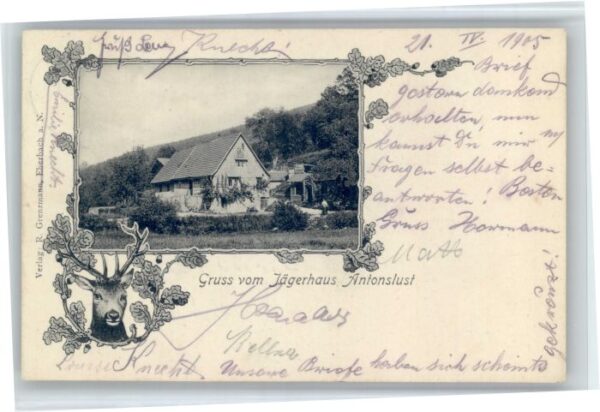 Gruß Knecht
21. IV. 1905
Brief
gestern dankend
erhalten, nun
kannst Du mir
Fragen selbst be-
antworten! Besten
Gruss Hermann
Verlag R. Grenzmann, Eberbach a. N.
Gruss vom Jägerhaus Antonslust
Kellner
Louise Knecht
Unsere Briefe haben sich scheints
gekreuzt!